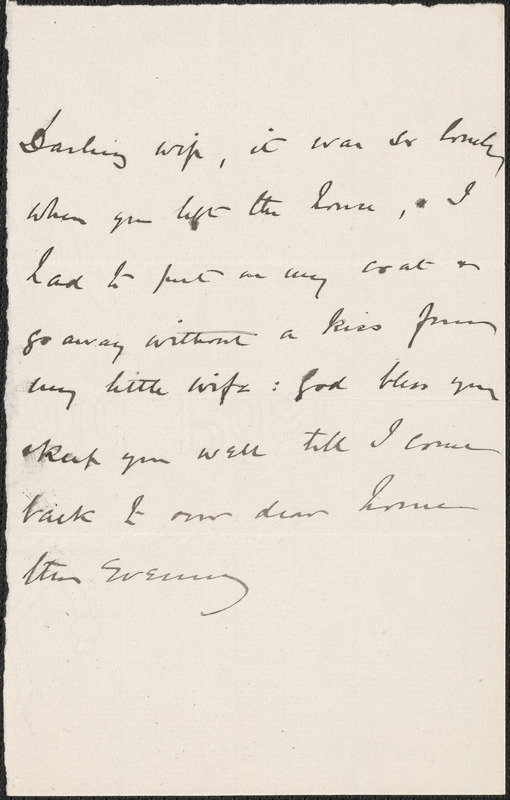 Darling wife, it was so lonely
when you left the house, & I
had to put on my coat &
go away without a kiss from
my little wife: God bless you
& keep you well till I come
back to our dear home
this Evening